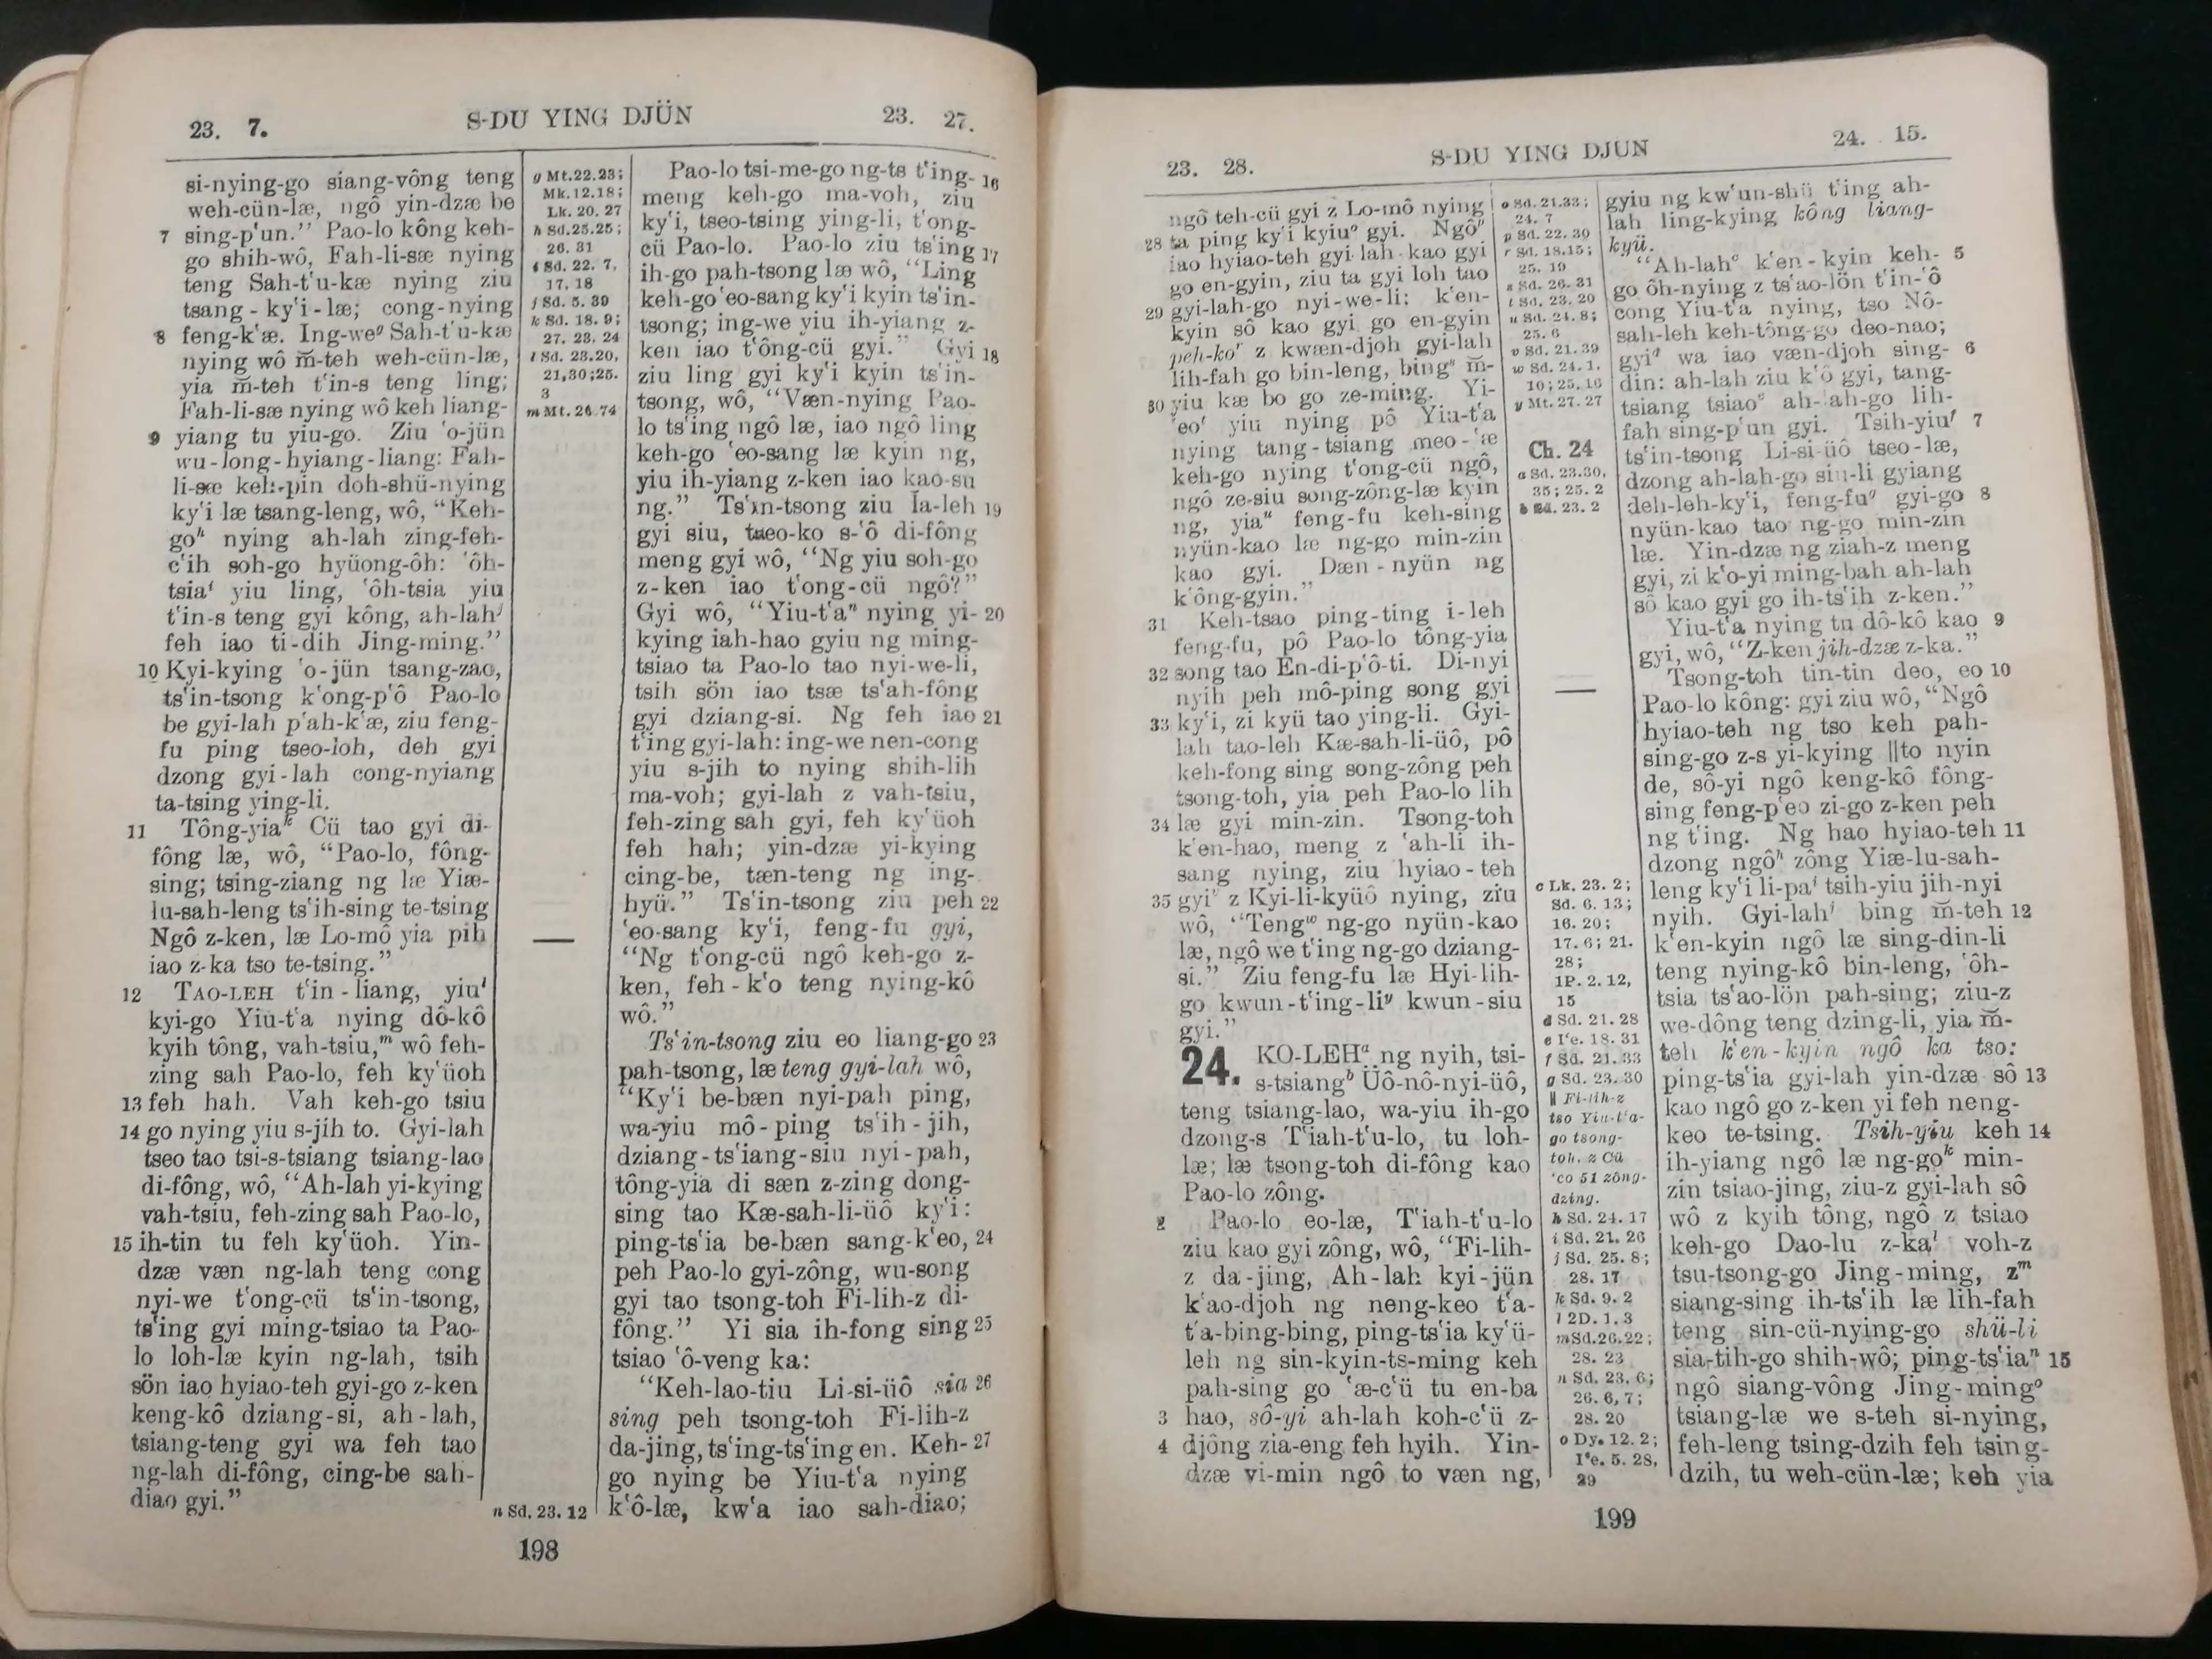 23. 7.
S-DU YING DJÜN
23. 27.
si-nying-go siang-vông teng
weh-cün-læ, ngô yin-dzæ be
7 sing-pʻun.” Pao-lo kông keh-
go shih-wô, Fah-li-sæ nying
teng Sah-tʻu-kæ nying ziu
tsang-kyʻi-læ; cong-nying
8 feng-kʻæ. Ing-weᵍ Sah-tʻu-kæ
nying wô m̆-teh weh-cün-læ,
yia m̆-teh tʻin-s teng ling;
Fah-li-sæ nying wô keh liang-
9 yiang tu yiu-go. Ziu ʻo-jün
wu-long-hyiang-liang: Fah-
li-sæ keh-pin doh-shü-nying
kyʻi læ tsang-leng, wô, “Keh-
goʰ nying ah-lah zing-feh-
cʻih soh-go hyüong-ôh: ʻôh-
tsiaⁱ yiu ling, ʻôh-tsia yiu
tʻin-s teng gyi kông, ah-lahʲ
feh iao ti-dih Jing-ming.”
10 Kyi-kying ʻo-jün tsang-zao,
tsʻin-tsong kʻong-pʻô Pao-lo
be gyi-lah pʻah-kʻæ, ziu feng-
fu ping tseo-loh, deh gyi
dzong gyi-lah cong-nyiang
ta-tsing ying-li.
11 Tông-yiaᵏ Cü tao gyi di-
fông læ, wô, “Pao-lo, fông-
sing; tsing-ziang ng læ Yiæ-
lu-sah-leng tsʻih-sing te-tsing
Ngô z-ken, læ Lo-mô yia pih
iao z-ka tso te-tsing.”
12 TAO-LEH tʻin-liang, yiuˡ
kyi-go Yiu-tʻa nying dô-kô
kyih tông, vah-tsiu,ᵐ wô feh-
zing sah Pao-lo, feh kyʻüoh
13 feh hah. Vah keh-go tsiu
14 go nying yiu s-jih to. Gyi-lah
tseo tao tsi-s-tsiang tsiang-lao
di-fông, wô, “Ah-lah yi-kying
vah-tsiu, feh-zing sah Pao-lo,
15 ih-tin tu feh kyʻüoh. Yin-
dzæ væn ng-lah teng cong
nyi-we tʻong-cü tsʻin-tsong,
tsʻing gyi ming-tsiao ta Pao-
lo loh-læ kyin ng-lah, tsih
sön iao hyiao-teh gyi-go z-ken
keng-kô dziang-si, ah-lah,
tsiang-teng gyi wa feh tao
ng-lah di-fông, cing-be sah-
diao gyi.”
g Mt.22.23;
Mk.12.18;
Lk. 20. 27
h Sd.25.25;
26. 31
i Sd. 22. 7,
17. 18
j Sd. 5. 39
k Sd. 18. 9;
27. 23, 24
l Sd. 23.20,
21,30;25.
3
m Mt. 26.74
n Sd. 23. 12
Pao-lo tsi-me-go ng-ts tʻing- 16
meng keh-go ma-voh, ziu
kyʻi, tseo-tsing ying-li, tʻong-
cü Pao-lo. Pao-lo ziu tsʻing 17
ih-go pah-tsong læ wô, “Ling
keh-go ʻeo-sang kyʻi kyin tsʻin-
tsong; ing-we yiu ih-yiang z-
ken iao tʻông-cü gyi.” Gyi 18
ziu ling gyi kyʻi kyin tsʻin-
tsong, wô, “Væn-nying Pao-
lo tsʻing ngô læ, iao ngô ling
keh-go ʻeo-sang læ kyin ng,
yiu ih-yiang z-ken iao kao-su
ng.” Tsʻin-tsong ziu la-leh 19
gyi siu, tseo-ko s-ʻô di-fông
meng gyi wô, “Ng yiu soh-go
z-ken iao tʻong-cü ngô?”
Gyi wô, “Yiu-tʻaⁿ nying yi- 20
kying iah-hao gyiu ng ming-
tsiao ta Pao-lo tao nyi-we-li,
tsih sön iao tsæ tsʻah-fông
gyi dziang-si. Ng feh iao 21
tʻing gyi-lah: ing-we nen-cong
yiu s-jih to nying shih-lih
ma-voh; gyi-lah z vah-tsiu,
feh-zing sah gyi, feh kyʻüoh
feh hah; yin-dzæ yi-kying
cing-be, tæn-teng ng ing-
hyü.” Tsʻin-tsong ziu peh 22
ʻeo-sang kyʻi, feng-fu gyi,
“Ng tʻong-cü ngô keh-go z-
ken, feh-kʻo teng nying-kô
wô.”
Tsʻin-tsong ziu eo liang-go 23
pah-tsong, læ teng gyi-lah wô,
“Kyʻi be-bæn nyi-pah ping,
wa-yiu mô-ping tsʻih-jih,
dziang-tsʻiang-siu nyi-pah,
tông-yia di sæn z-zing dong-
sing tao Kæ-sah-li-üô kyʻi:
ping-tsʻia be-bæn sang-kʻeo, 24
peh Pao-lo gyi-zông, wu-song
gyi tao tsong-toh Fi-lih-z di-
fông.” Yi sia ih-fong sing 25
tsiao ʻô-veng ka:
“Keh-lao-tiu Li-si-üô sia 26
sing peh tsong-toh Fi-lih-z
da-jing, tsʻing-tsʻing en. Keh- 27
go nying be Yiu-tʻa nying
kʻô-læ, kwʻa iao sah-diao;
198
23. 28.
S-DU YING DJÜN
24. 15.
ngô teh-cü gyi z Lo-mô nying
28 ta ping kyʻi kyiuᵒ gyi. Ngôᵖ
iao hyiao-teh gyi-lah kao gyi
go en-gyin, ziu ta gyi loh tao
29 gyi-lah-go nyi-we-li; kʻen-
kyin sô kao gyi go en-gyin
peh-koʳ z kwæn-djoh gyi-lah
lih-fah go bin-leng, bingˢ m̆-
30 yiu kæ bo go ze-ming. Yi-
ʻeoᵗ yiu nying pô Yiu-tʻa
nying tang-tsiang meo-ʻæ
keh-go nying tʻong-cü ngô,
ngô ze-siu song-zông-læ kyin
ng, yiaᵘ feng-fu keh-sing
nyün-kao læ ng-go min-zin
kao gyi. Dæn-nyün ng
kʻông-gyin.”
31 Keh-tsao ping-ting i-leh
feng-fu, pô Pao-lo tông-yia
32 song tao En-di-pʻô-ti. Di-nyi
nyih peh mô-ping song gyi
33 kyʻi, zi kyü tao ying-li. Gyi-
lah tao-leh Kæ-sah-li-üô, pô
keh-fong sing song-zông peh
tsong-toh, yia peh Pao-lo lih
34 læ gyi min-zin. Tsong-toh
kʻen-hao, meng z ʻah-li ih-
sang nying, ziu hyiao-teh
35 gyiᵛ z Kyi-li-kyüô nying, ziu
wô, “Tengʷ ng-go nyün-kao
læ, ngô we tʻing ng-go dziang-
si.” Ziu feng-fu læ Hyi-lih-
go kwun-tʻing-liʸ kwun-siu
gyi.”
24. KO-LEHᵃ ng nyih, tsi-
s-tsiangᵇ Üô-nô-nyi-üô,
teng tsiang-lao, wa-yiu ih-go
dzong-s Tʻiah-tʻu-lo, tu loh-
læ; læ tsong-toh di-fông kao
Pao-lo zông.
2 Pao-lo eo-læ, Tʻiah-tʻu-lo
ziu kao gyi zông, wô, “Fi-lih-
z da-jing, Ah-lah kyi-jün
kʻao-djoh ng neng-keo tʻa-
tʻa-bing-bing, ping-tsʻia kyʻü-
leh ng sin-kyin-ts-ming keh
pah-sing go ʻæ-cʻü tu en-ba
3 hao, sô-yi ah-lah koh-cʻü z-
4 djông zia-eng feh hyih. Yin-
dzæ vi-min ngô to væn ng,
o Sd. 21.33;
24. 7
p Sd. 22. 30
r Sd. 18.15;
25. 19
s Sd. 26. 31
t Sd. 23. 20
u Sd. 24. 8;
25. 6
v Sd. 21. 39
w Sd. 24. 1,
10; 25. 16
y Mt. 27. 27
Ch. 24
a Sd. 23.30,
35; 25. 2
b Sd. 23. 2
c Lk. 23. 2;
Sd. 6. 13;
16. 20;
17. 6; 21.
28;
1P. 2. 12,
15
d Sd. 21. 28
e Iʻe. 18. 31
f Sd. 21. 33
g Sd. 23. 30
|| Fi-lih-z
tso Yiu-tʻa-
go tsong-
toh, z Cü
ʻeo 51 zông-
dzing.
h Sd. 24. 17
i Sd. 21. 26
j Sd. 25. 8;
28. 17
k Sd. 9. 2
l 2D. 1. 3
m Sd. 26. 22;
28. 23
n Sd. 23. 6;
26. 6, 7;
28. 20
o Dy. 12. 2;
Iʻe. 5. 28,
29
gyiu ng kwʻun-shü tʻing ah-
lah ling-kying kông liang-
kyü.
“Ah-lahᶜ kʻen-kyin keh- 5
go ôh-nying z tsʻao-lön tʻin-ʻô
cong Yiu-tʻa nying, tso Nô-
sah-leh keh-tông-go deo-nao;
gyiᵈ wa iao væn-djoh sing- 6
din: ah-lah ziu kʻô gyi, tang-
tsiang tsiaoᵉ ah-lah-go lih-
fah sing-pʻun gyi. Tsih-yiuᶠ 7
tsʻin-tsong Li-si-üô tseo-læ,
dzong ah-lah-go siu-li gyiang
deh-leh-kyʻi, feng-fuᵍ gyi-go 8
nyün-kao tao ng-go min-zin
læ. Yin-dzæ ng ziah-z meng
gyi, zi kʻo-yi ming-bah ah-lah
sô kao gyi go ih-tsʻih z-ken.”
Yiu-tʻa nying tu dô-kô kao 9
gyi, wô, “Z-ken jih-dzæ z-ka.”
Tsong-toh tin-tin deo, eo 10
Pao-lo kông: gyi ziu wô, “Ngô
hyiao-teh ng tso keh pah-
sing-go z-s yi-kying ||to nyin
de, sô-yi ngô keng-kô fông-
sing feng-pʻeo zi-go z-ken peh
ng tʻing. Ng hao hyiao-teh 11
dzong ngôʰ zông Yiæ-lu-sah-
leng kyʻi li-paⁱ tsih-yiu jih-nyi
nyih. Gyi-lahʲ bing m̆-teh 12
kʻen-kyin ngô læ sing-din-li
teng nying-kô bin-leng, ʻôh-
tsia tsʻao-lön pah-sing; ziu-z
we-dông teng dzing-li, yia m̆-
teh kʻen-kyin ngô ka tso:
ping-tsʻia gyi-lah yin-dzæ sô 13
kao ngô go z-ken yi feh neng-
keo te-tsing. Tsih-yiu keh 14
ih-yiang ngô læ ng-goᵏ min-
zin tsiao-jing, ziu-z gyi-lah sô
wô z kyih tông, ngô z tsiao
keh-go Dao-lu z-kaˡ voh-z
tsu-tsong-go Jing-ming, zᵐ
siang-sing ih-tsʻih læ lih-fah
teng sin-cü-nying-go shü-li
sia-tih-go shih-wô; ping-tsʻiaⁿ 15
ngô siang-vông Jing-mingᵒ
tsiang-læ we s-teh si-nying,
feh-leng tsing-dzih feh tsing-
dzih, tu weh-cün-læ; keh yia
199